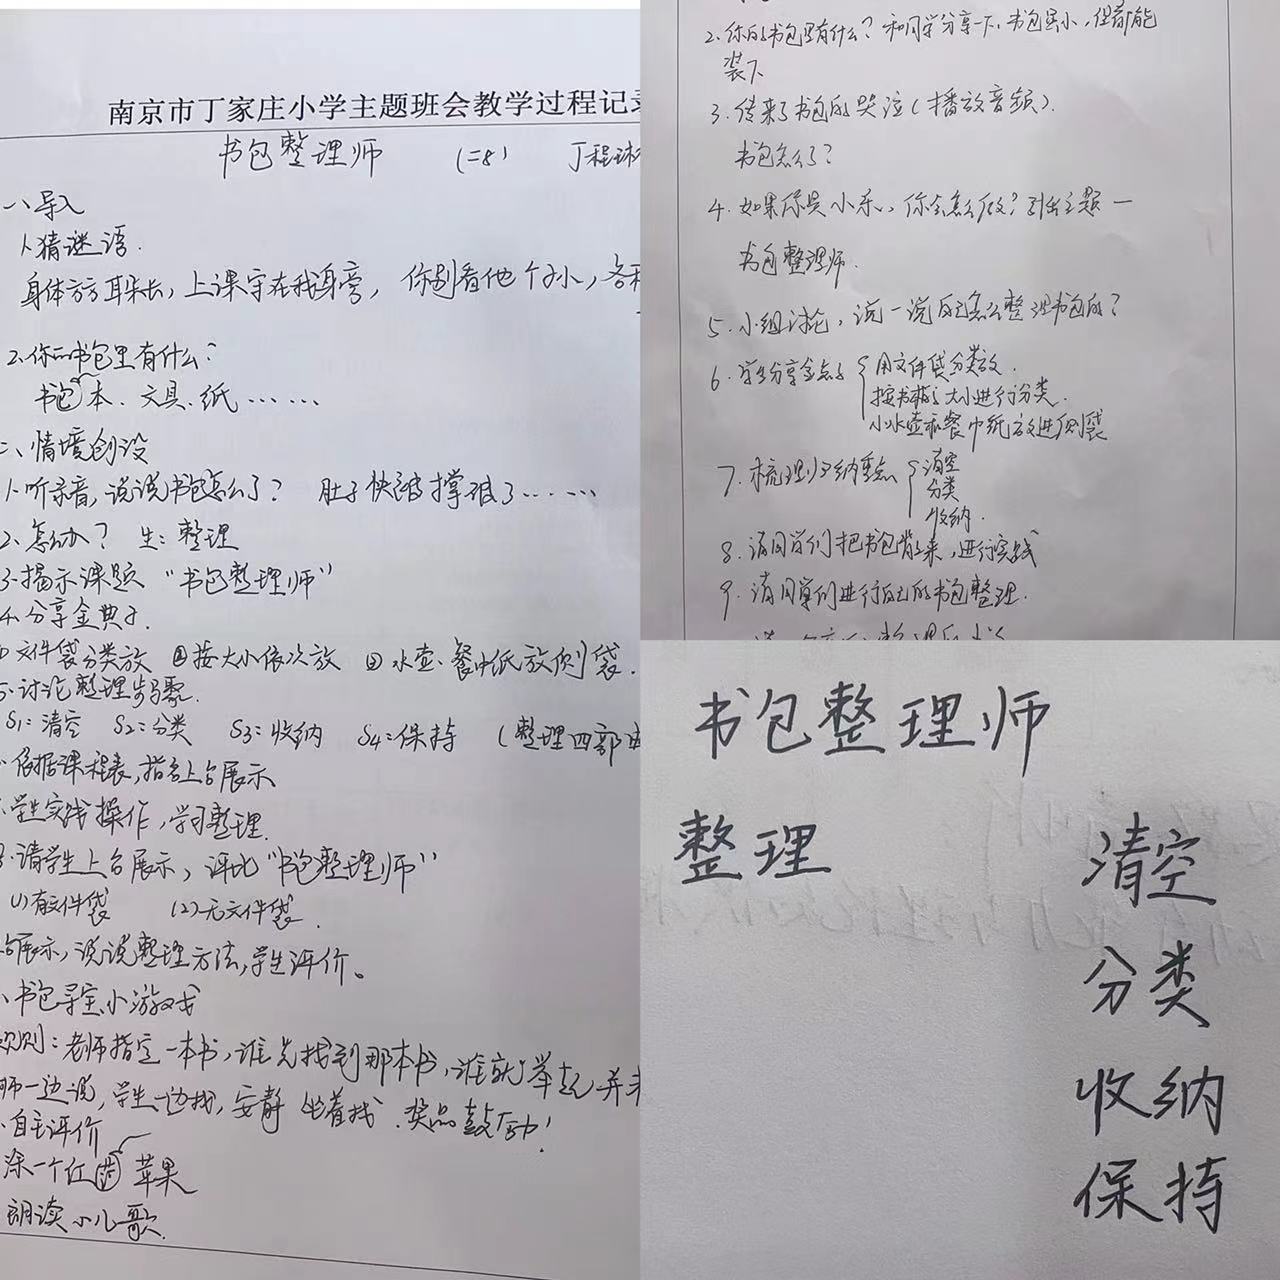 南京市丁家庄小学主题班会教学过程记录
书包整理师 (二8) 丁程琳
一、导入
1.猜谜语.
身体方方耳朵长,上课守在我身旁, 你别看他个子小,各种
2.你的书包里有什么?
书包本、文具、纸……
二、情境创设
1.听录音,说说书包怎么了? 肚子快被撑破了……
2.怎么办? 生:整理
3.揭示课题 "书包整理师"
4.分享金点子.
①文件袋分类放 ②按大小依次放 ③水壶、餐巾纸放侧袋.
5.讨论整理步骤.
S1:清空 S2:分类 S3:收纳 S4:保持 (整理四部曲
依据课程表,指名上台展示
学生实践操作,学习整理.
8.请学生上台展示,评比"书包整理师"
(1)有文件袋 (2)无文件袋.
台展示,说说整理方法,学生评价。
、书包寻宝小游戏
规则:老师指定一本书,谁先找到那本书,谁就举起并
师一边说,学生一边找,安静坐着找.奖品鼓励!
.自主评价
涂一个红 苹果
朗读小儿歌.
2.你的书包里有什么?和同学分享一下.书包虽小,但都能
装下
3.传来了书包的哭泣(播放音频).
书包怎么了?
4.如果你是小乐,你会怎么做?引出主题—
书包整理师.
5.小组讨论,说一说自己怎么整理书包的?
6.学生分享金点子 用文件袋分类放.
按书本大小进行分类.
小水壶和餐巾纸放进侧袋
7.梳理归纳重点 清空
分类
收纳.
8.请同学们把书包背上来,进行实践
9.请同学们进行自己的书包整理.
书包整理师
整理 清空
分类
收纳
保持